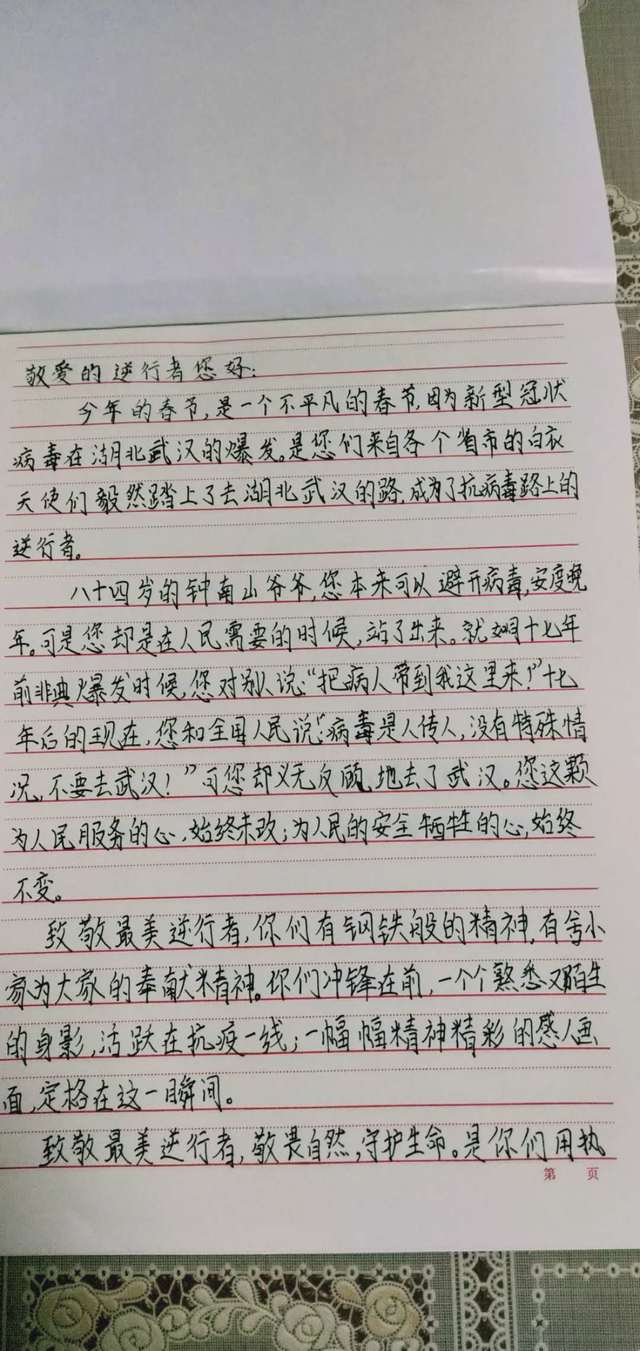 敬爱的逆行者您好:
今年的春节,是一个不平凡的春节,因为新型冠状
病毒在湖北武汉的爆发。是您们来自各个省市的白衣
天使们毅然踏上了去湖北武汉的路,成为了抗病毒路上的
逆行者。
八十四岁的钟南山爷爷,您本来可以避开病毒,安度晚
年。可是您却是在人民需要的时候,站了出来。就如同十七年
前非典爆发时候,您对别人说:“把病人带到我这里来!”十七
年后的现在,您和全国人民说:“病毒是人传人,没有特殊情
况,不要去武汉!”可您却义无反顾地去了武汉。您这颗
为人民服务的心,始终未改;为人民的安全牺牲的心,始终
不变。
致敬最美逆行者,你们有钢铁般的精神,有舍小
家为大家的奉献精神。你们冲锋在前,一个个熟悉又陌生
的身影,活跃在抗疫一线;一幅幅精神精彩的感人画
面,定格在这一瞬间。
致敬最美逆行者,敬畏自然,守护生命。是你们用执
第 页